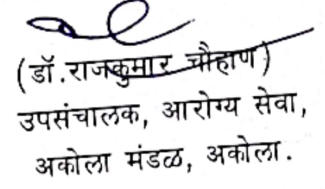 (डॉ.राजकुमार चौहाण)
उपसंचालक, आरोग्य सेवा,
अकोला मंडळ, अकोला.